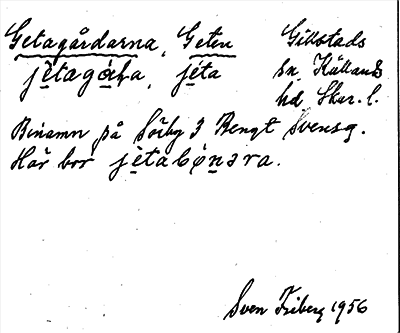 Getagårdarna, Geten
jetagàɫa, jeta
Gillstads
sn, Kållands
hd Skar. l.
Binamn på Sörby 3 Bengt Svensg.
Här bor jetabönəra.
Sven Friberg 1956